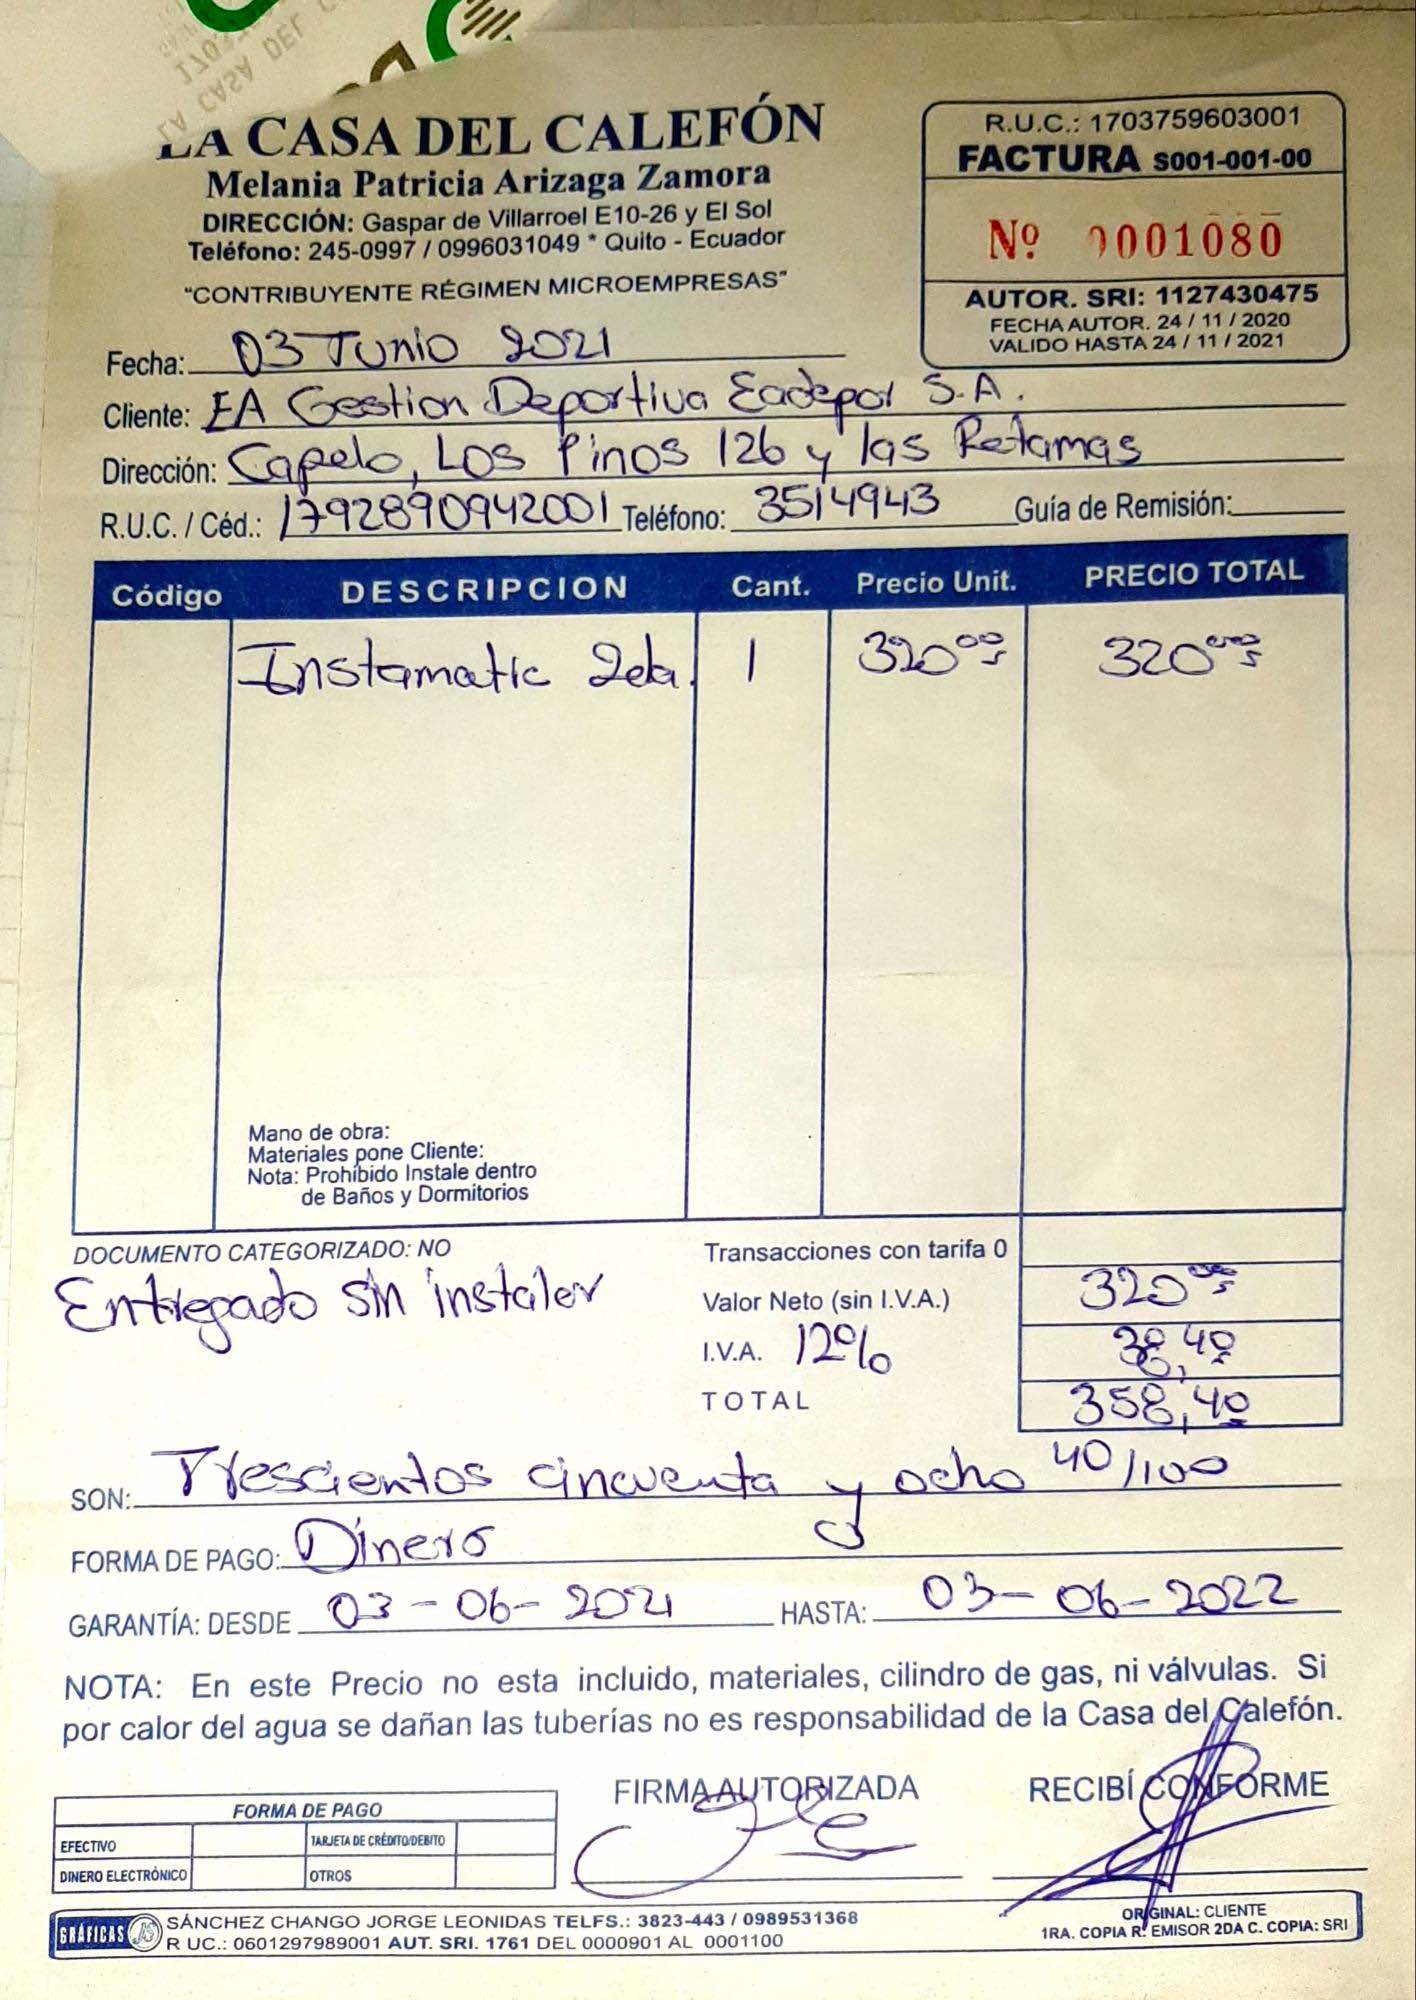 LA CASA DEL CALEFÓN
Melania Patricia Arizaga Zamora
DIRECCIÓN: Gaspar de Villarroel E10-26 y El Sol
Teléfono: 245-0997 / 0996031049 * Quito - Ecuador
"CONTRIBUYENTE RÉGIMEN MICROEMPRESAS"
R.U.C.: 1703759603001
FACTURA S001-001-00
Nº 0001080
AUTOR. SRI: 1127430475
FECHA AUTOR. 24 / 11 / 2020
VALIDO HASTA 24 / 11 / 2021
Fecha: 03 Junio 2021
Cliente: EA Gestion Deportiva Eadepor S.A.
Dirección: Capelo, Los Pinos 126 y las Retamas
R.U.C. / Céd.: 1792890942001 Teléfono: 3514943 Guía de Remisión:
Código DESCRIPCION Cant. Precio Unit. PRECIO TOTAL
Instamatic 1 320 00 320 00
Mano de obra:
Materiales pone Cliente:
Nota: Prohíbido Instale dentro
de Baños y Dormitorios
DOCUMENTO CATEGORIZADO: NO Transacciones con tarifa 0
Entregado sin instalar
Valor Neto (sin I.V.A.) 320 00
I.V.A. 12% 38,40
TOTAL 358,40
SON: Trescientos cincuenta y ocho 40/100
FORMA DE PAGO: Dinero
GARANTÍA: DESDE 03-06-2021 HASTA: 03-06-2022
NOTA: En este Precio no esta incluido, materiales, cilindro de gas, ni válvulas. Si
por calor del agua se dañan las tuberías no es responsabilidad de la Casa del Calefón.
FIRMA AUTORIZADA RECIBÍ CONFORME
FORMA DE PAGO
EFECTIVO TARJETA DE CRÉDITO/DEBITO
DINERO ELECTRÓNICO OTROS
GRÁFICAS JS SÁNCHEZ CHANGO JORGE LEONIDAS TELFS.: 3823-443 / 0989531368
R UC.: 0601297989001 AUT. SRI. 1761 DEL 0000901 AL 0001100
ORIGINAL: CLIENTE
1RA. COPIA R: EMISOR 2DA C. COPIA: SRI